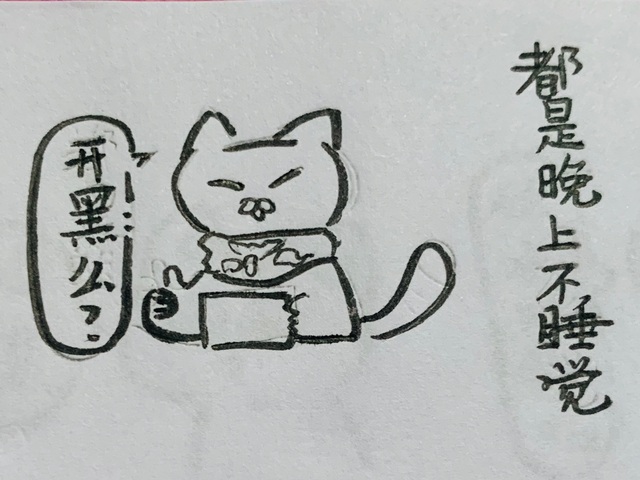 都是晚上不睡觉
开黑么？